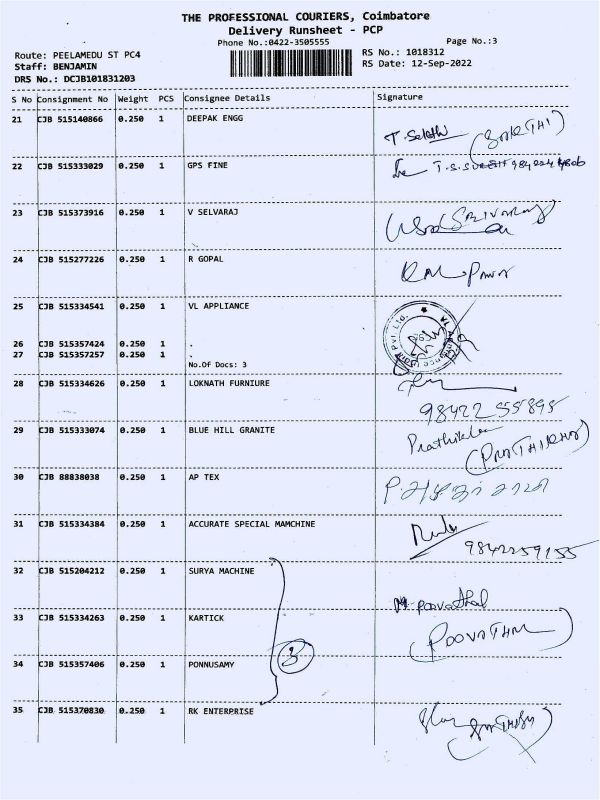 THE PROFESSIONAL COURIERS, Coimbatore
Delivery Runsheet - PCP
Phone No.:0422-3505555 Page No.:3
Route: PEELAMEDU ST PC4 RS No.: 1018312
Staff: BENJAMIN RS Date: 12-Sep-2022
DRS No.: DCJB101831203
S No Consignment No Weight PCS Consignee Details Signature
21 CJB 515140866 0.250 1 DEEPAK ENGG
22 CJB 515333029 0.250 1 GPS FINE
23 CJB 515373916 0.250 1 V SELVARAJ
24 CJB 515277226 0.250 1 R GOPAL
25 CJB 515334541 0.250 1 VL APPLIANCE
26 CJB 515357424 0.250 1 .
27 CJB 515357257 0.250 1 .
No.Of Docs: 3
28 CJB 515334626 0.250 1 LOKNATH FURNIURE
98422 55895
29 CJB 515333074 0.250 1 BLUE HILL GRANITE
30 CJB 88838038 0.250 1 AP TEX
31 CJB 515334384 0.250 1 ACCURATE SPECIAL MAMCHINE
9842259155
32 CJB 515204212 0.250 1 SURYA MACHINE
33 CJB 515334263 0.250 1 KARTICK
3
34 CJB 515357406 0.250 1 PONNUSAMY
35 CJB 515370830 0.250 1 RK ENTERPRISE